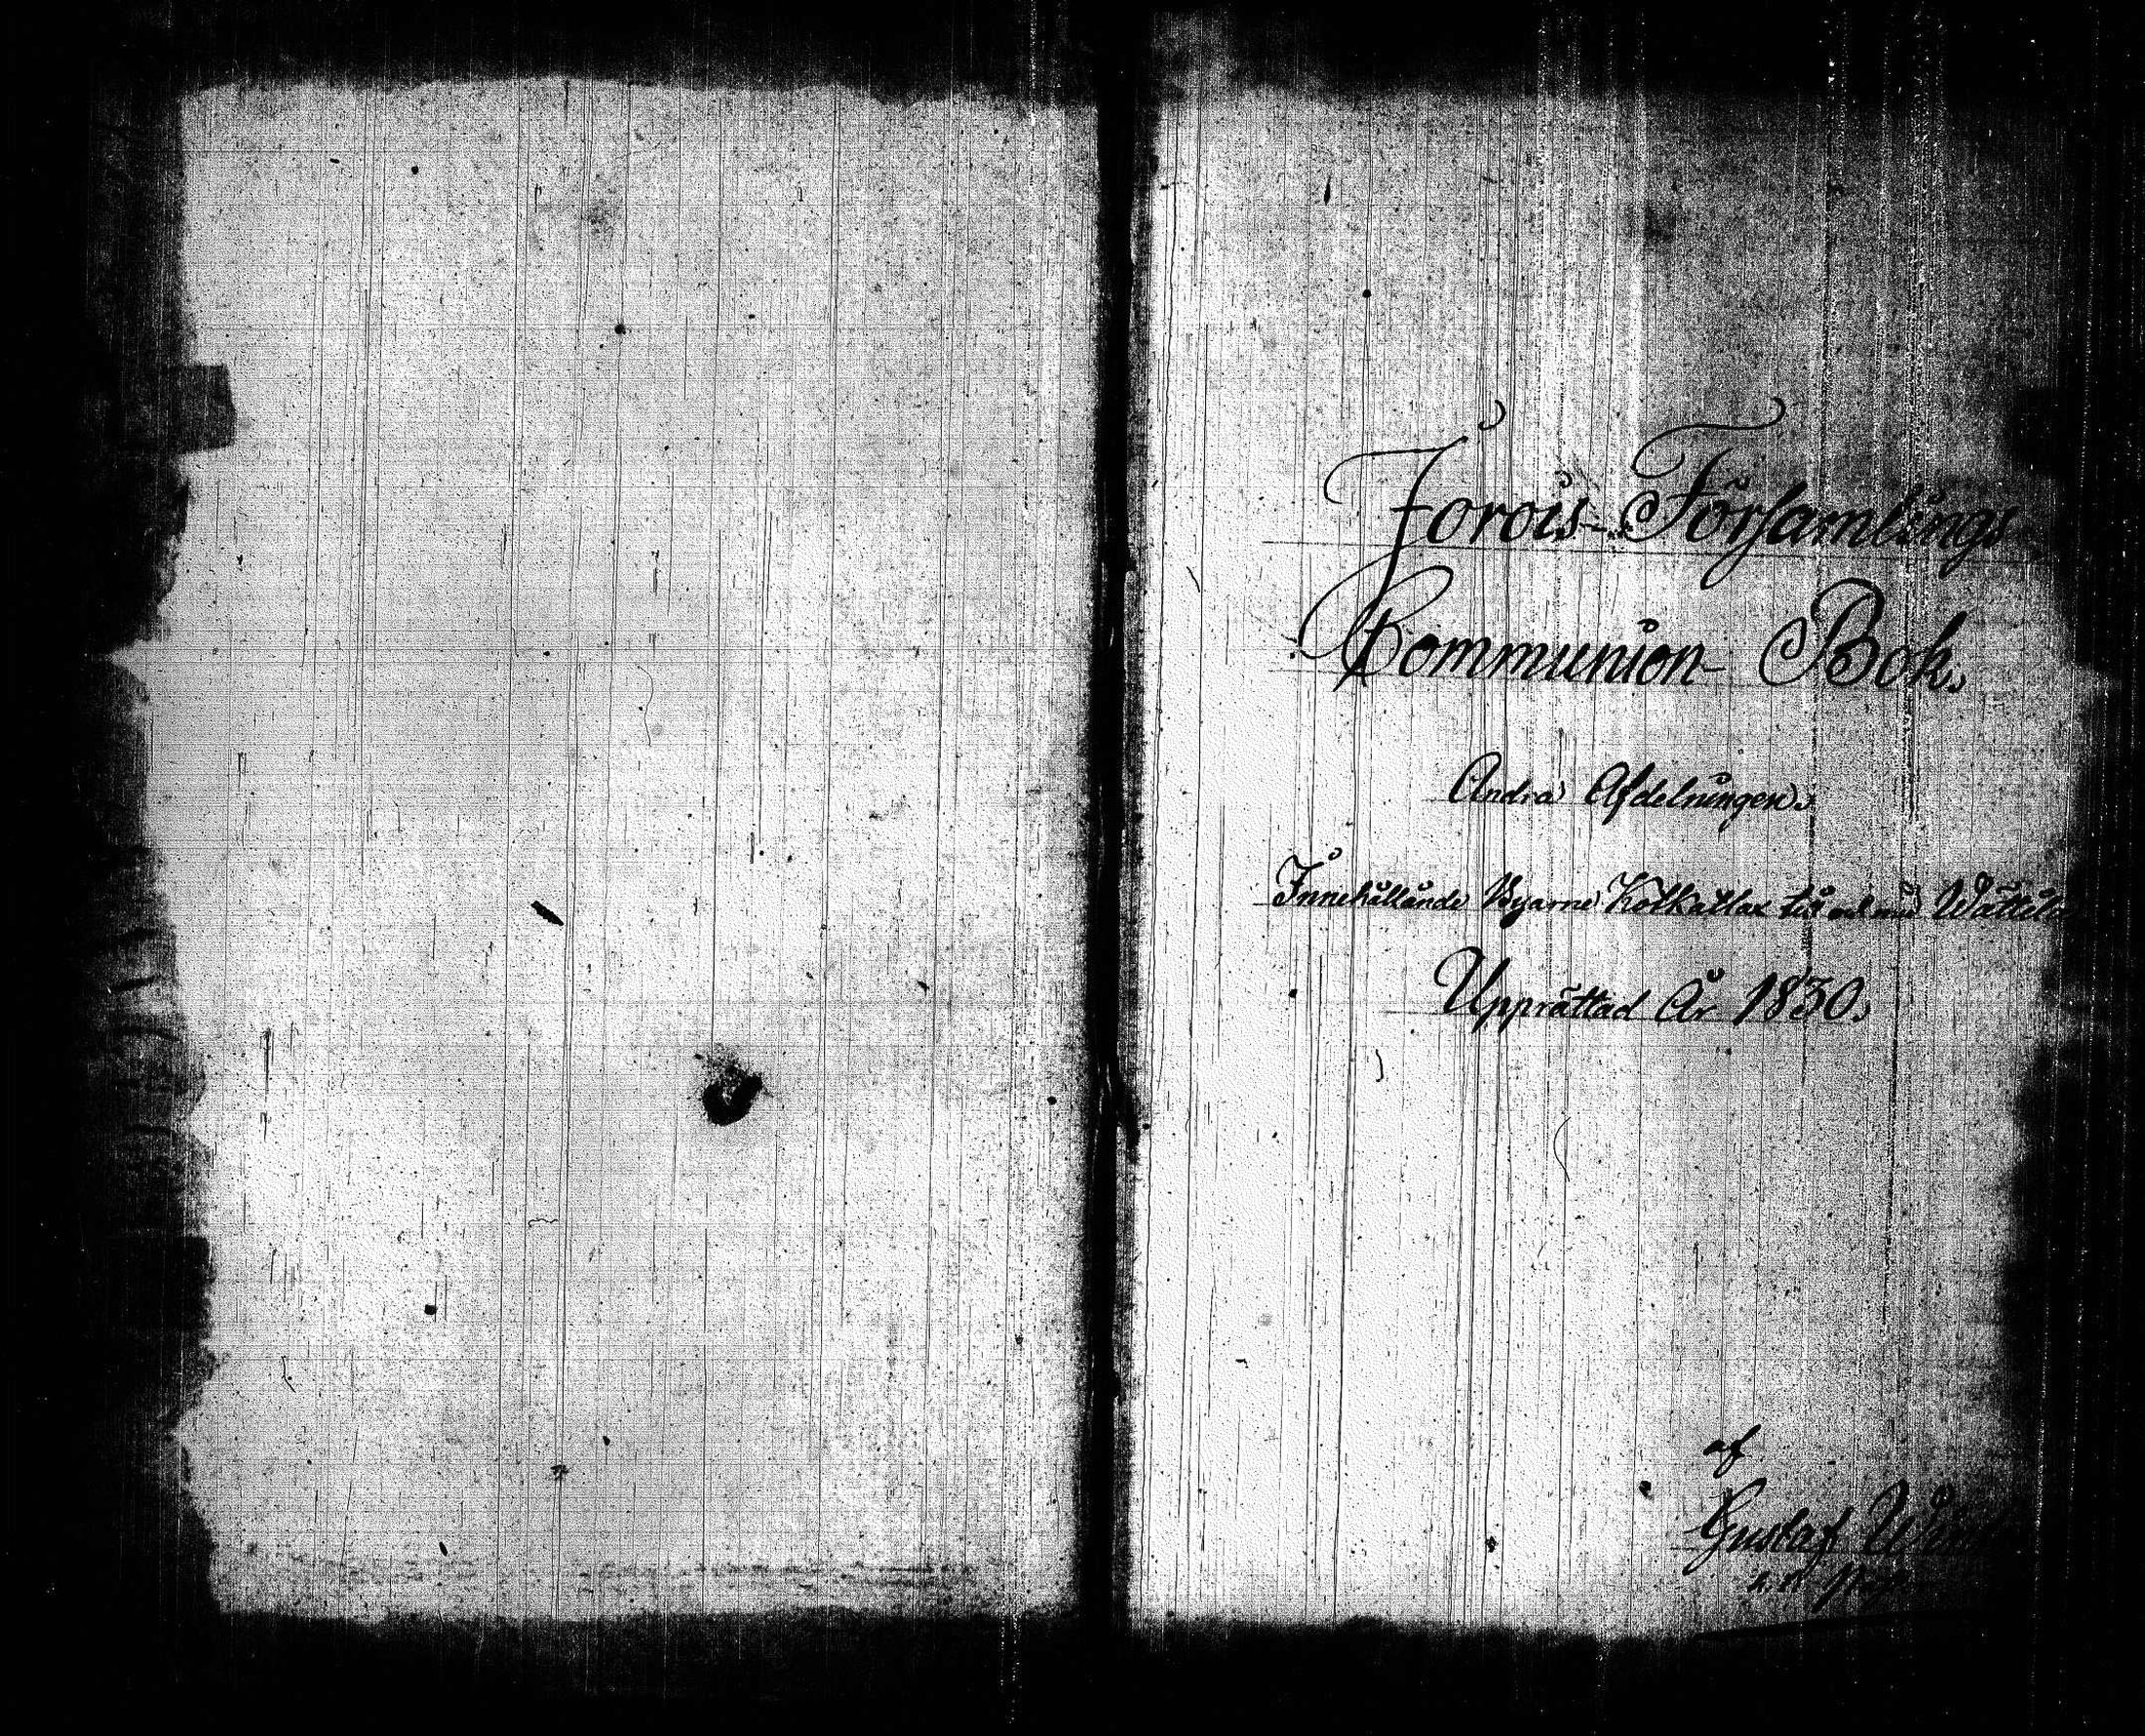 Jorois- Församlings
Communion- Bok.
Andra Afdelningen.
Innehållande Byarne Kolkallax til och med
Upprättad År 1830.
af
Gustaf